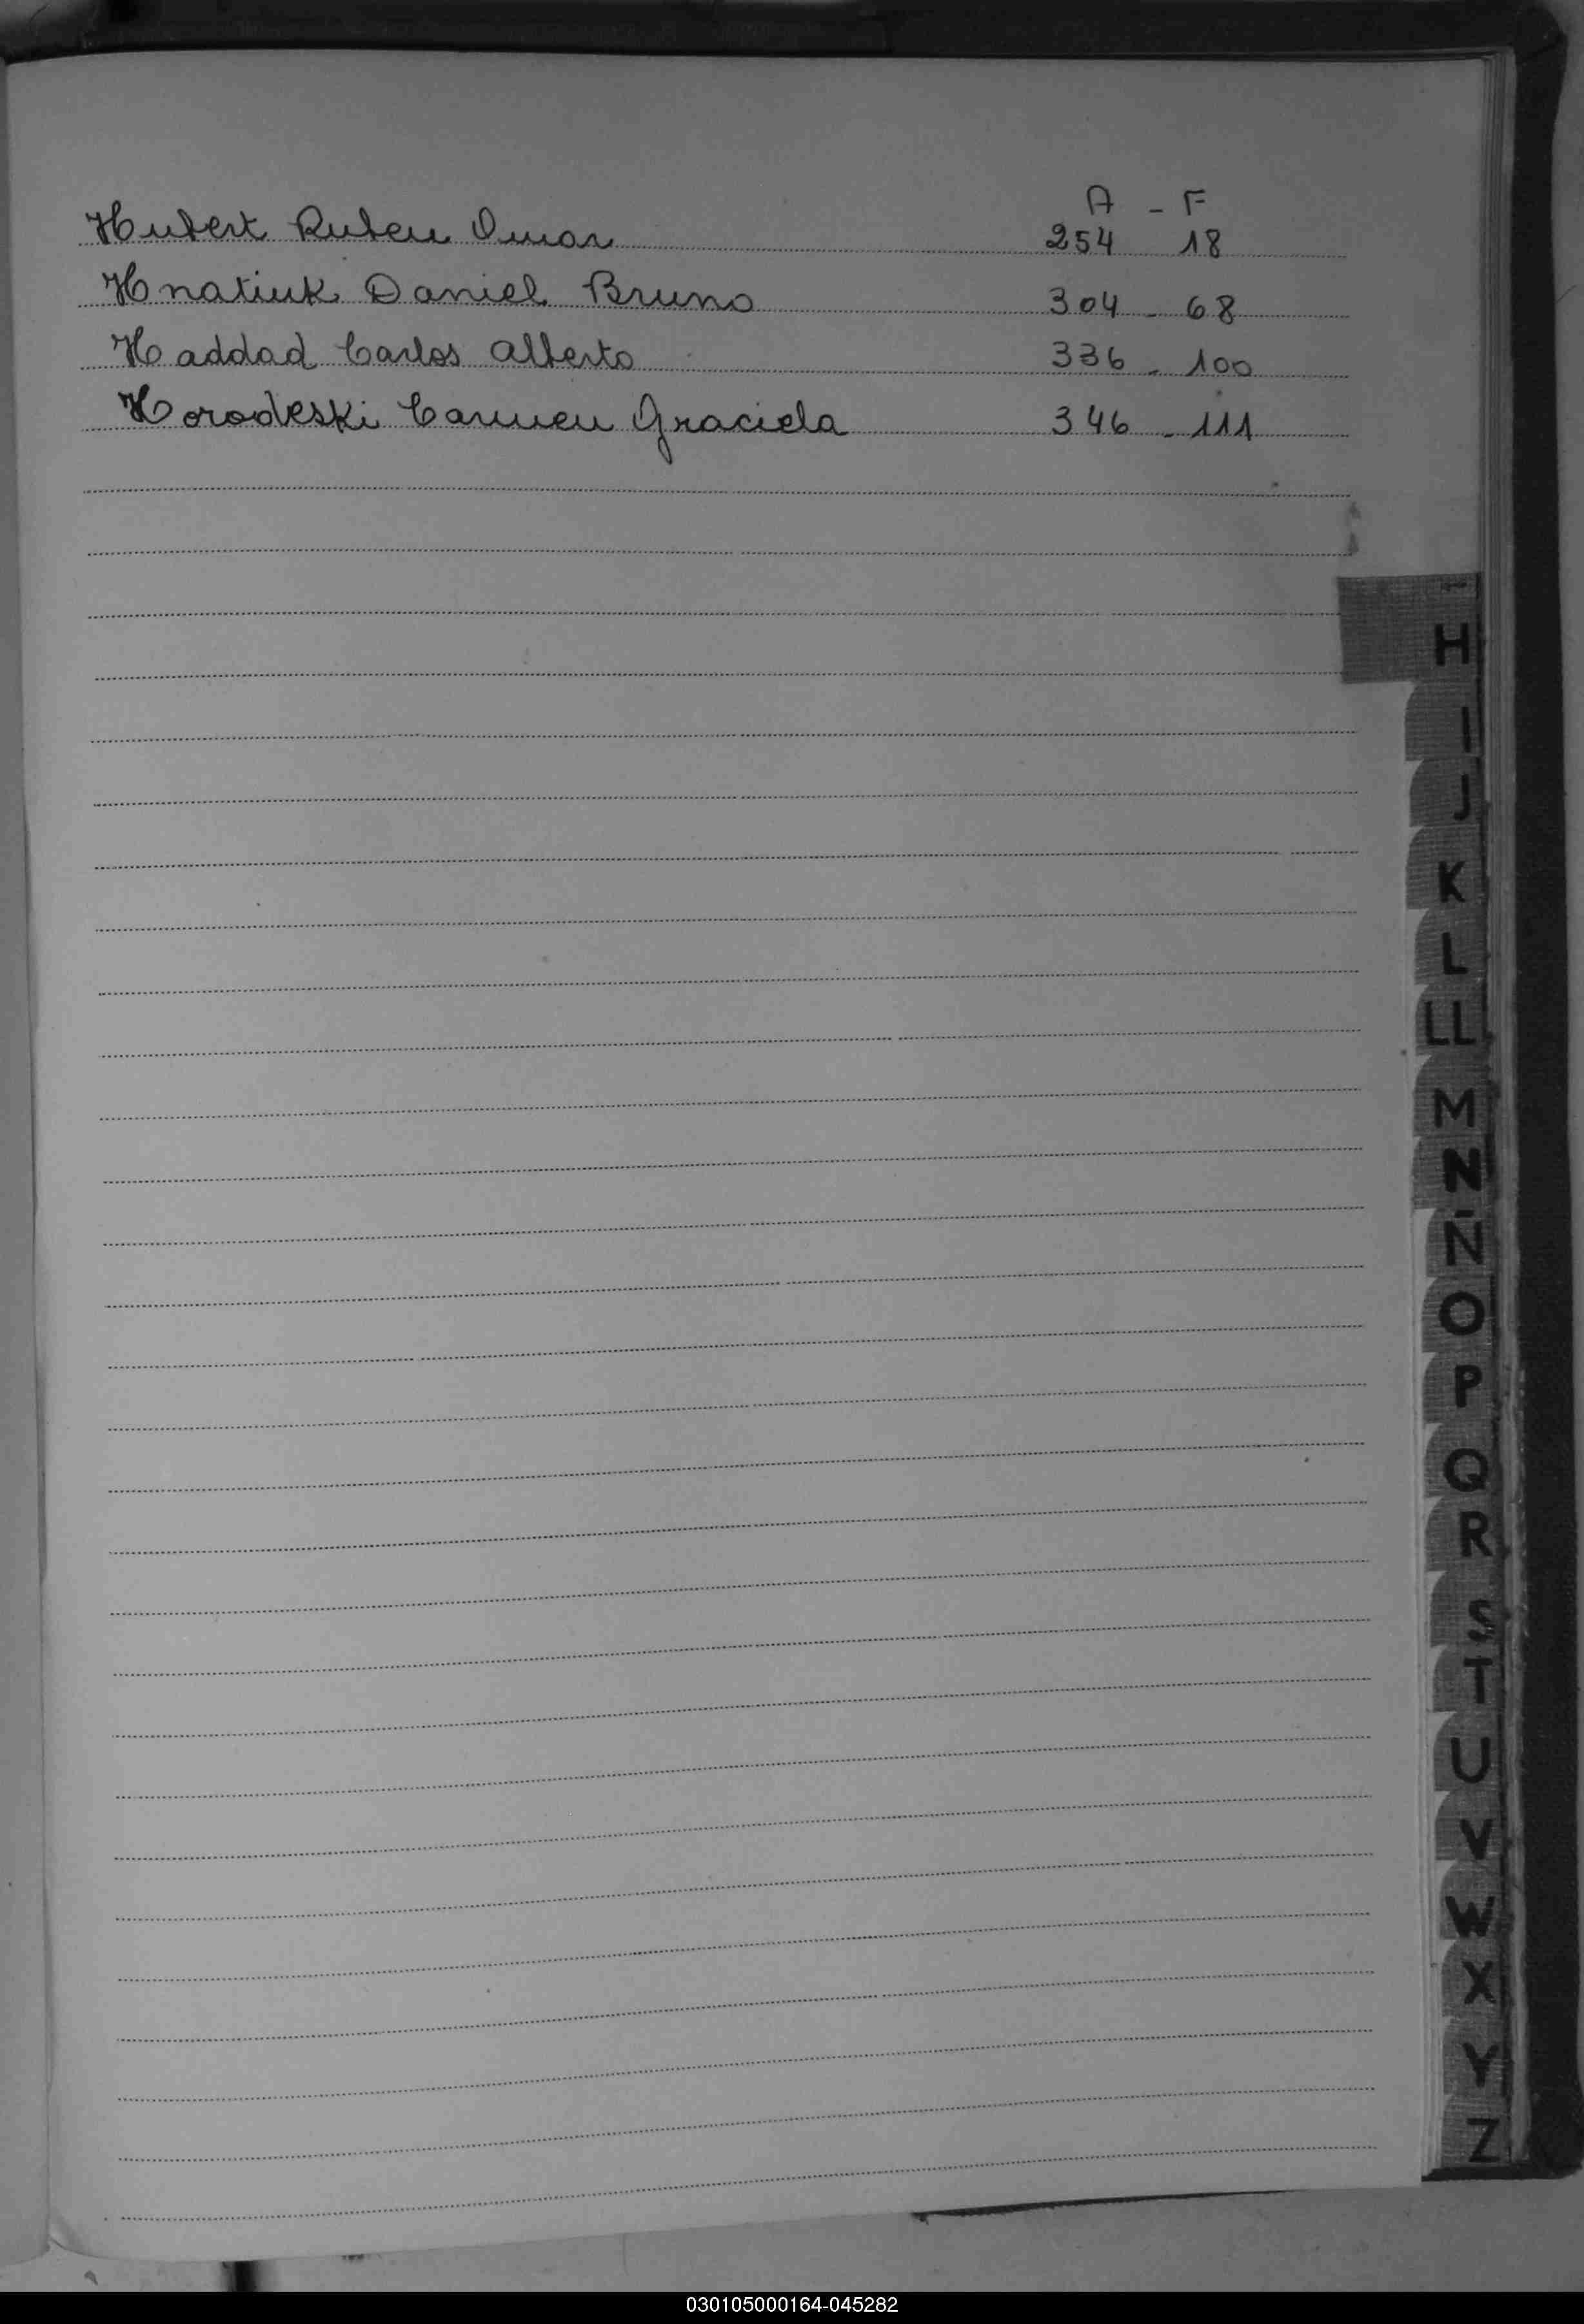 A - F
Hubert Ruben Omar 254 18
Hnatiuk Daniel Bruno 304 - 68
Haddad Carlos Alberto 336 - 100
Horodeski Carmen Graciela 346 - 111
H
I
J
K
L
LL
M
N
Ñ
O
P
Q
R
S
T
U
V
W
X
Y
Z
030105000164-045282